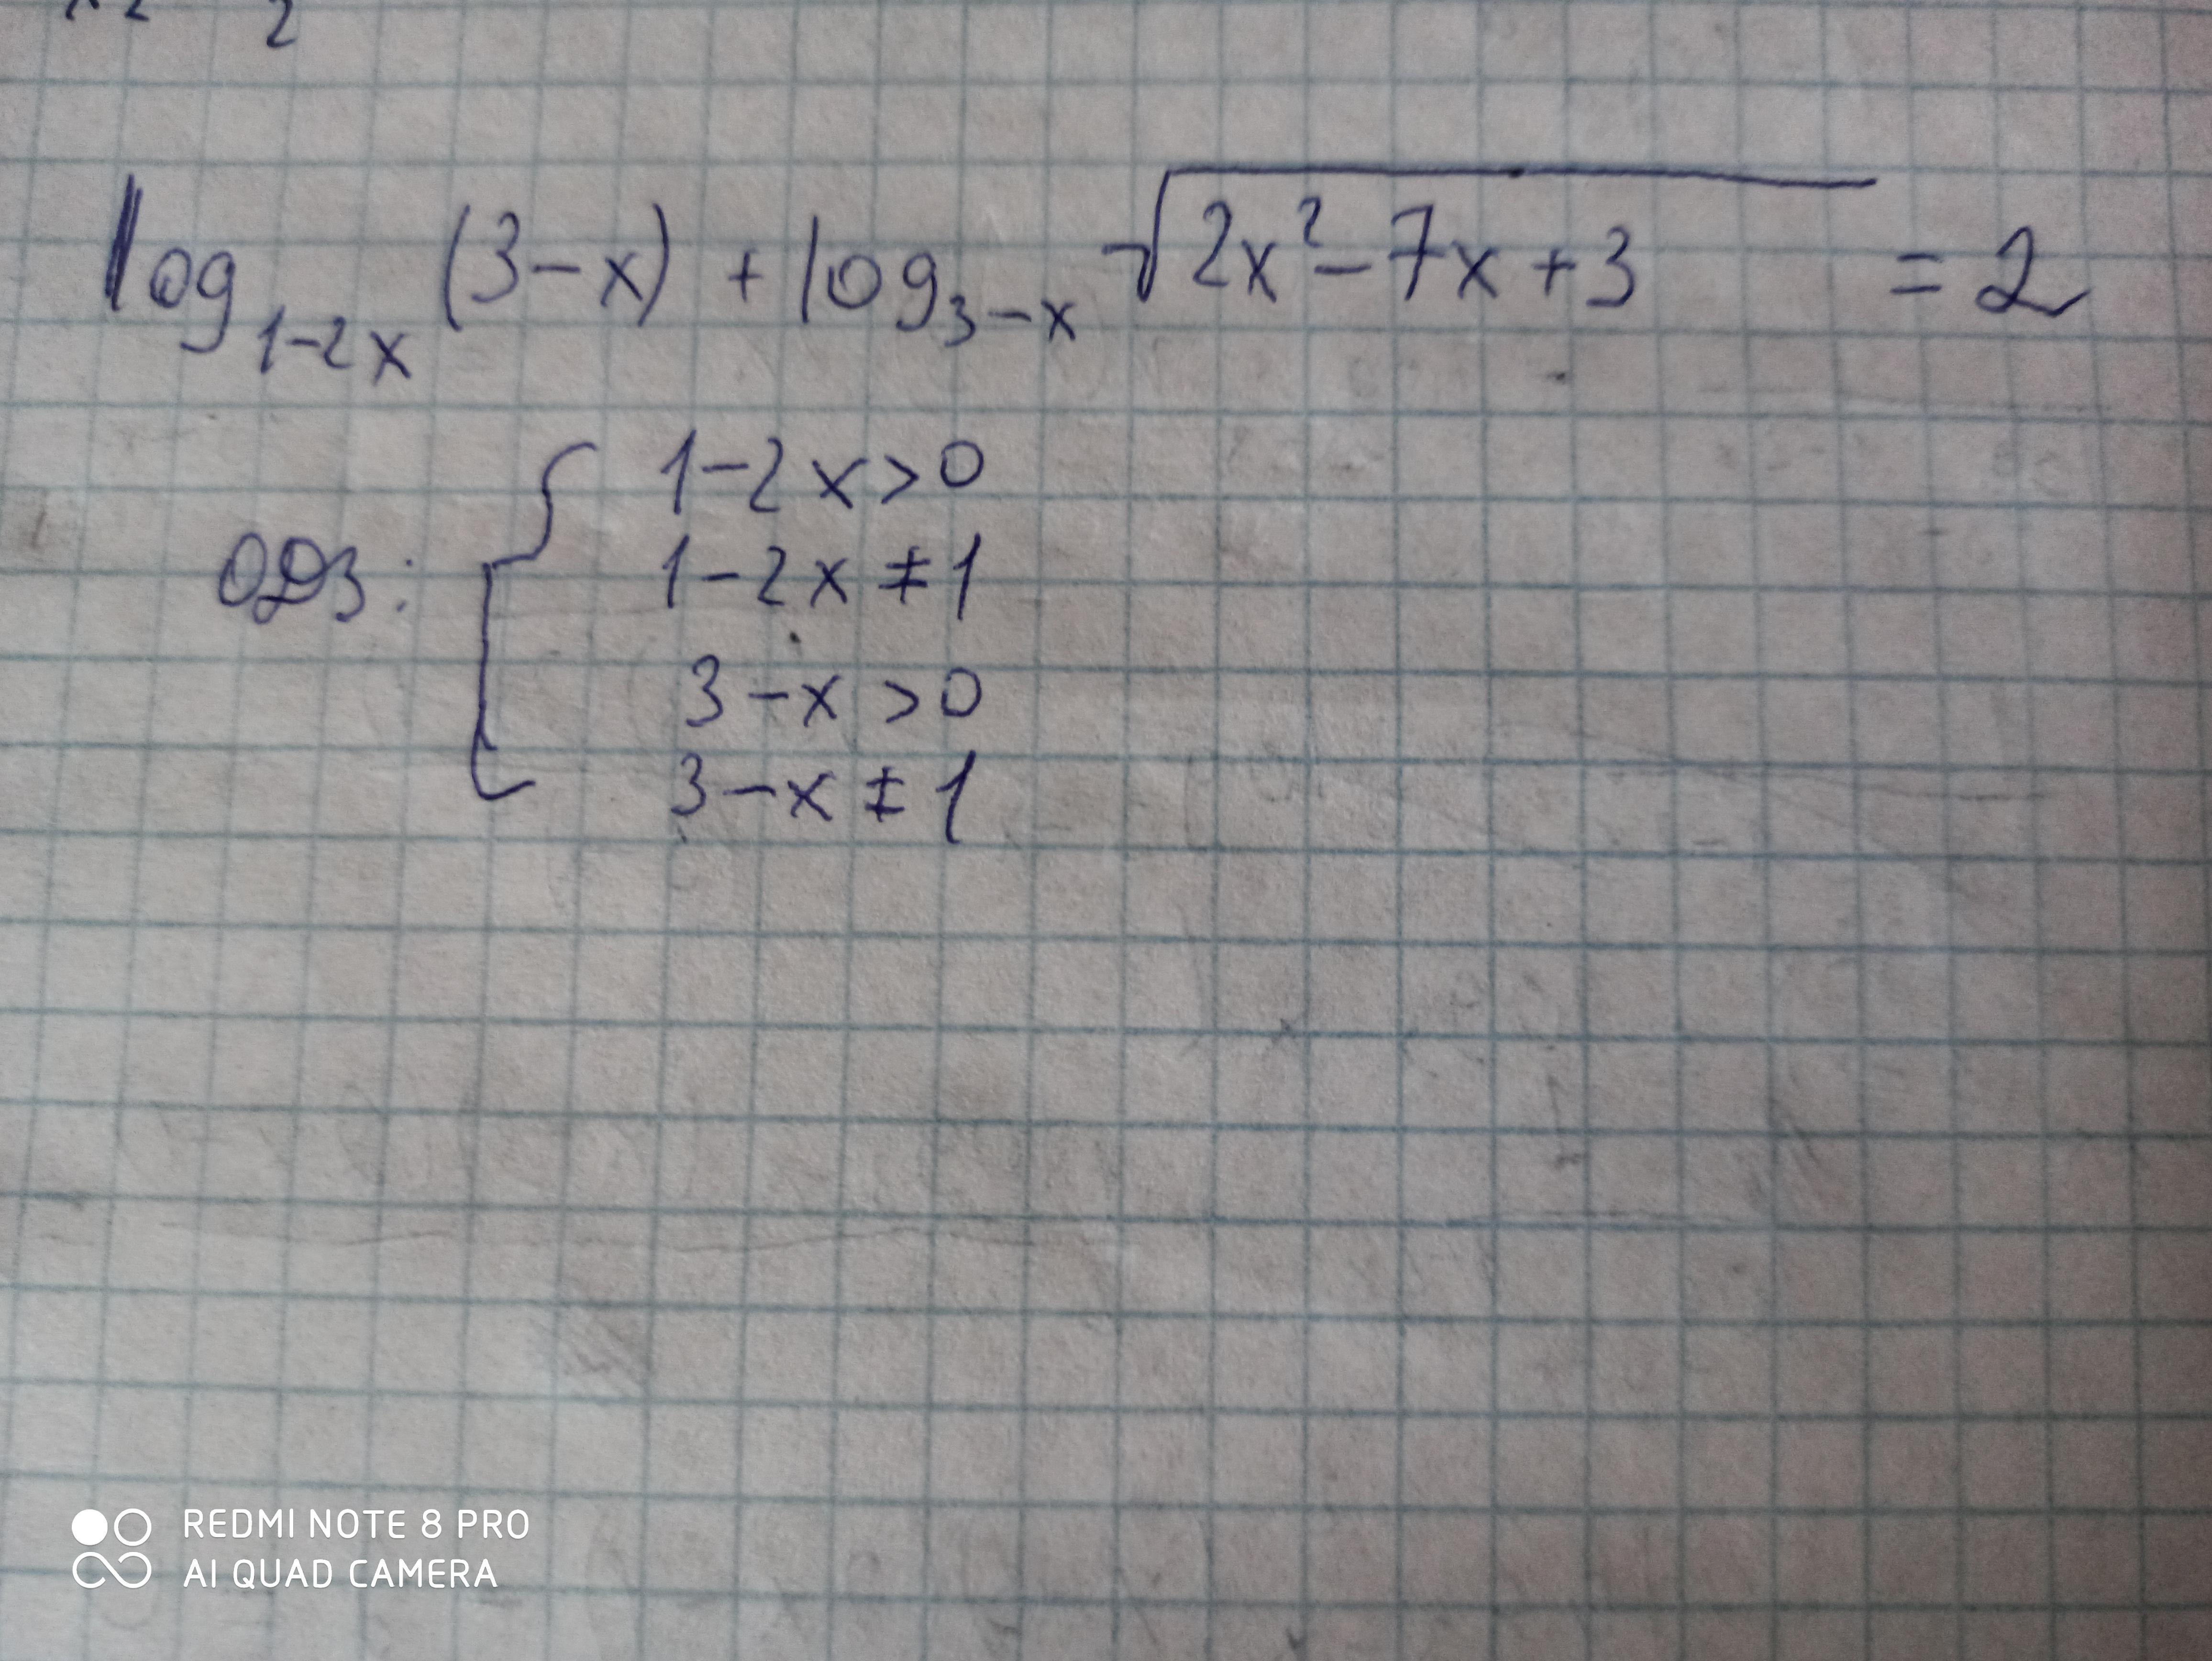 log₁₋₂ₓ (3-x) + log₃₋ₓ √(2x²-7x+3) = 2
ОДЗ: { 1-2x>0
1-2x≠1
3-x>0
3-x≠1
REDMI NOTE 8 PRO
AI QUAD CAMERA